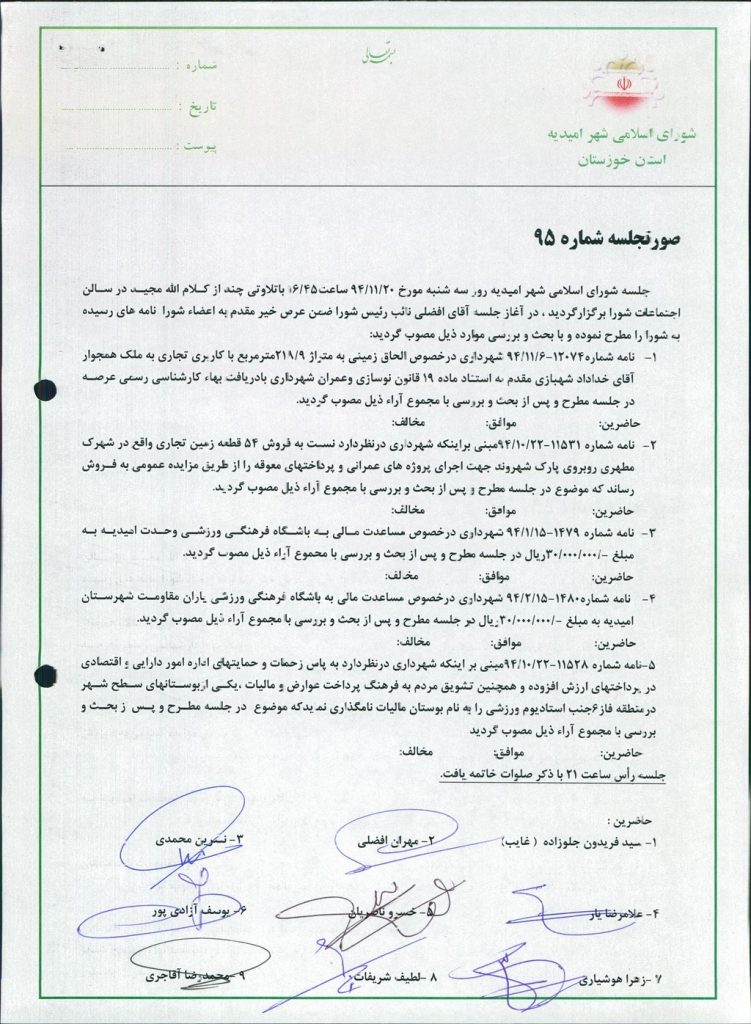 بسمه تعالی
شماره :
تاریخ :
پیوست :
شورای اسلامی شهر امیدیه
استان خوزستان
صورتجلسه شماره ۹۵
جلسه شورای اسلامی شهر امیدیه روز سه شنبه مورخ ۹۴/۱۱/۲۰ ساعت۱۶/۴۵ باتلاوتی چند از کلام الله مجید در سالن
اجتماعات شورا برگزارگردید ، در آغاز جلسه آقای افضلی نائب رئیس شورا ضمن عرض خیر مقدم به اعضاء شورا نامه های رسیده
به شورا را مطرح نموده و با بحث و بررسی موارد ذیل مصوب گردید:
۱- نامه شماره۱۲۰۷۴-۹۴/۱۱/۶ شهرداری درخصوص الحاق زمینی به متراژ ۲۱۸/۹مترمربع با کاربری تجاری به ملک همجوار
آقای خداداد شهبازی مقدم به استناد ماده ۱۹ قانون نوسازی وعمران شهرداری بادریافت بهاء کارشناسی رسمی عرصه
در جلسه مطرح و پس از بحث و بررسی با مجموع آراء ذیل مصوب گردید.
حاضرین: موافق: مخالف:
۲- نامه شماره ۱۱۵۳۱-۹۴/۱۰/۲۲مبنی براینکه شهرداری درنظردارد نسبت به فروش ۵۴ قطعه زمین تجاری واقع در شهرک
مطهری روبروی پارک شهروند جهت اجرای پروژه های عمرانی و پرداختهای معوقه را از طریق مزایده عمومی به فروش
رساند که موضوع در جلسه مطرح و پس از بحث و بررسی با مجموع آراء ذیل مصوب گردید.
حاضرین: موافق: مخالف:
۳- نامه شماره ۱۴۷۹-۹۴/۱/۱۵ شهرداری درخصوص مساعدت مالی به باشگاه فرهنگی ورزشی وحدت امیدیه به
مبلغ -/۳۰/۰۰۰/۰۰۰ریال در جلسه مطرح و پس از بحث و بررسی با مجموع آراء ذیل مصوب گردید.
حاضرین: موافق: مخالف:
۴- نامه شماره۱۴۸۰-۹۴/۲/۱۵ شهرداری درخصوص مساعدت مالی به باشگاه فرهنگی ورزشی یاران مقاومت شهرستان
امیدیه به مبلغ -/۳۰/۰۰۰/۰۰۰ریال در جلسه مطرح و پس از بحث و بررسی با مجموع آراء ذیل مصوب گردید.
حاضرین: موافق: مخالف:
۵-نامه شماره ۱۱۵۲۸-۹۴/۱۰/۲۲مبنی بر اینکه شهرداری درنظردارد به پاس زحمات و حمایتهای اداره امور دارایی و اقتصادی
در پرداختهای ارزش افزوده و همچنین تشویق مردم به فرهنگ پرداخت عوارض و مالیات ،یکی ازبوستانهای سطح شهر
درمنطقه فاز۶جنب استادیوم ورزشی را به نام بوستان مالیات نامگذاری نمایدکه موضوع در جلسه مطرح و پس از بحث و
بررسی با مجموع آراء ذیل مصوب گردید
حاضرین: موافق: مخالف:
جلسه رأس ساعت ۲۱ با ذکر صلوات خاتمه یافت.
حاضرین :
۱- سید فریدون جلوزاده ( غایب) ۲- مهران افضلی ۳- نسرین محمدی
۴- غلامرضا یار ۵- خسرو ناصریان ۶- یوسف آزادی پور
۷ -زهرا هوشیاری ۸ -لطیف شریفات ۹ -محمدرضا آقاجری